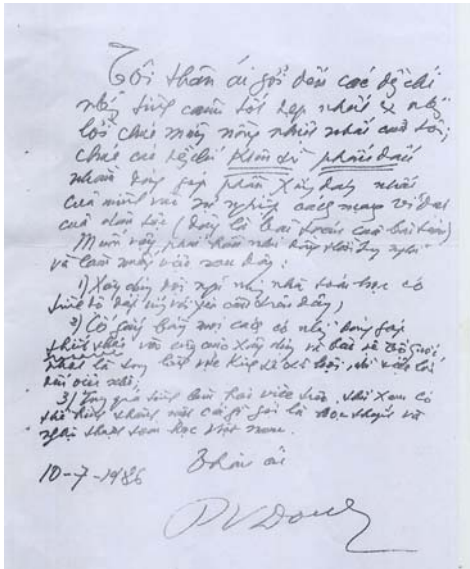 Tôi thân ái gởi đến các đ/c chí
những tình cảm tốt đẹp nhất & những
lời chúc mừng nồng nhiệt nhất của tôi;
chúc các phấn đấu
nhằm đóng góp phần xứng đáng nhất
của mình vào sự nghiệp cách mạng vĩ đại
của dân tộc (đây là bài toán của bài toán)
Muốn vậy, phải
và làm mấy việc sau đây:
1) Xây dựng đội ngũ những nhà toán học có
trình độ đáp ứng với yêu cầu trên đây,
2) Cố gắng bằng mọi cách có những đóng góp
thiết thực vào công cuộc xây dựng và bảo vệ Tổ quốc,
nhất là trong lĩnh vực kinh tế xã hội,
3) Trong quá trình làm hai việc trên, thử xem có
thể hình thành một cái gì gọi là học thuyết và
nghệ thuật toán học Việt Nam.
Thân ái
10-7-1986
PVDong